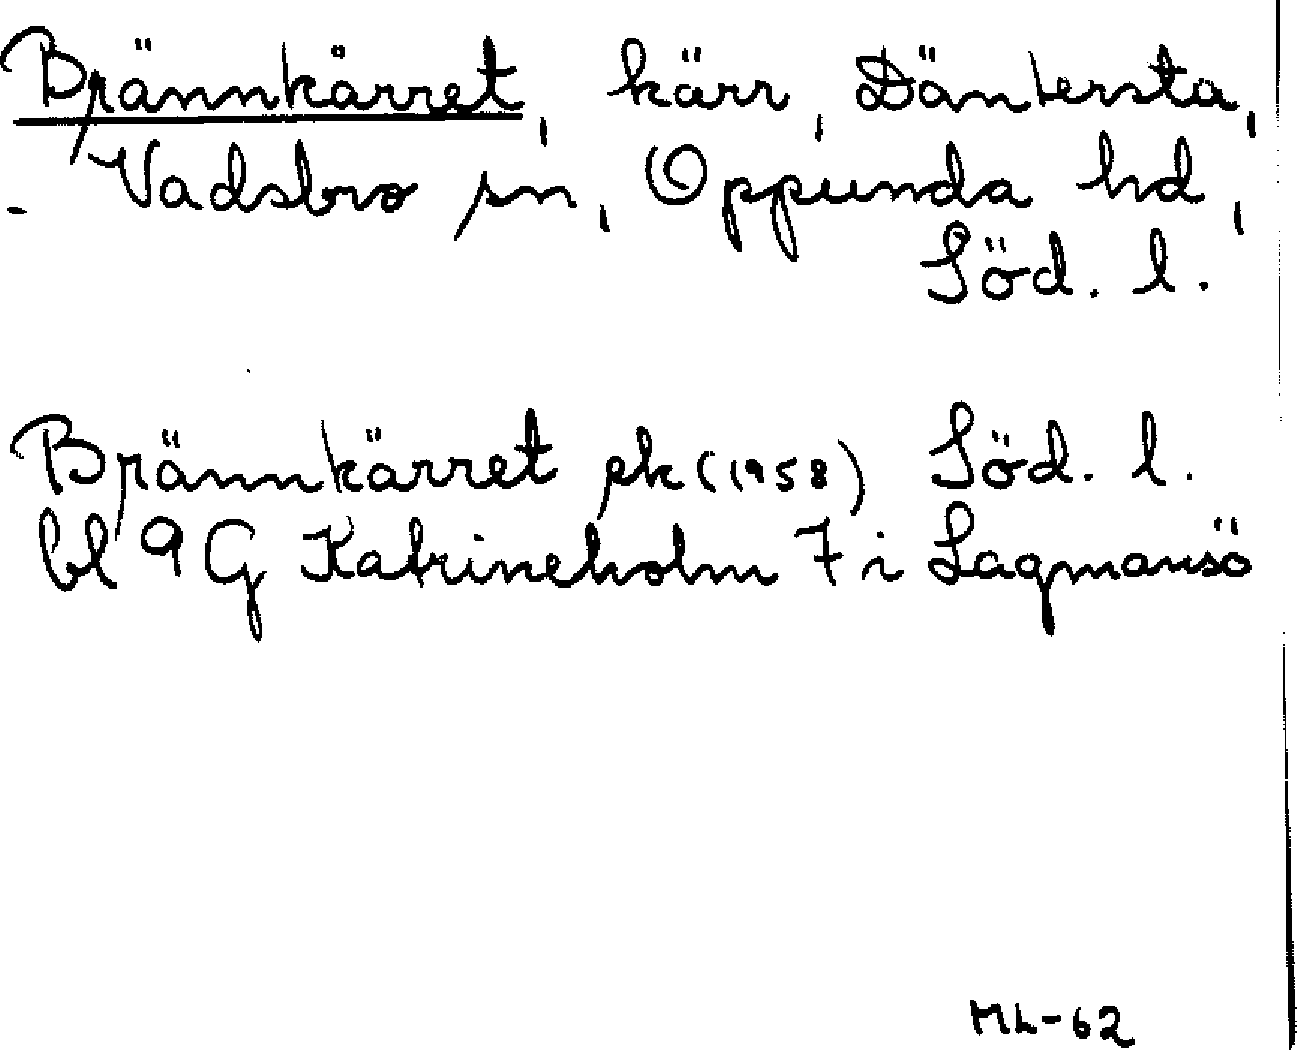 Brännkärret, kärr, Däntersta,
- Vadsbro sn, Oppunda hd,
Söd. l.
Brännkärret ek (1958) Söd. l.
bl 9 G Katrineholm 7 i Lagmansö
ML-62